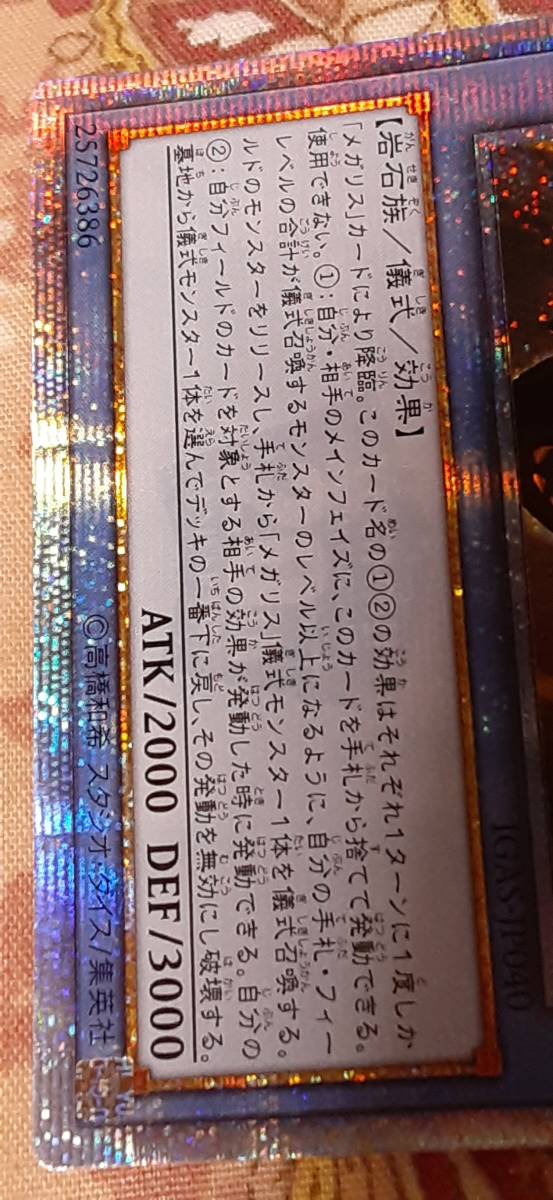 IGAS-JP040
【岩石族／儀式／効果】
「メガリス」カードにより降臨。このカード名の①②の効果はそれぞれ1ターンに1度しか
使用できない。①：自分・相手のメインフェイズに、このカードを手札から捨てて発動できる。
レベルの合計が儀式召喚するモンスターのレベル以上になるように、自分の手札・フィー
ルドのモンスターをリリースし、手札から「メガリス」儀式モンスター1体を儀式召喚する。
②：自分フィールドのカードを対象とする相手の効果が発動した時に発動できる。自分の
墓地から儀式モンスター1体を選んでデッキの一番下に戻し、その発動を無効にし破壊する。
ATK/2000 DEF/3000
25726386 ©高橋和希 スタジオ・ダイス/集英社